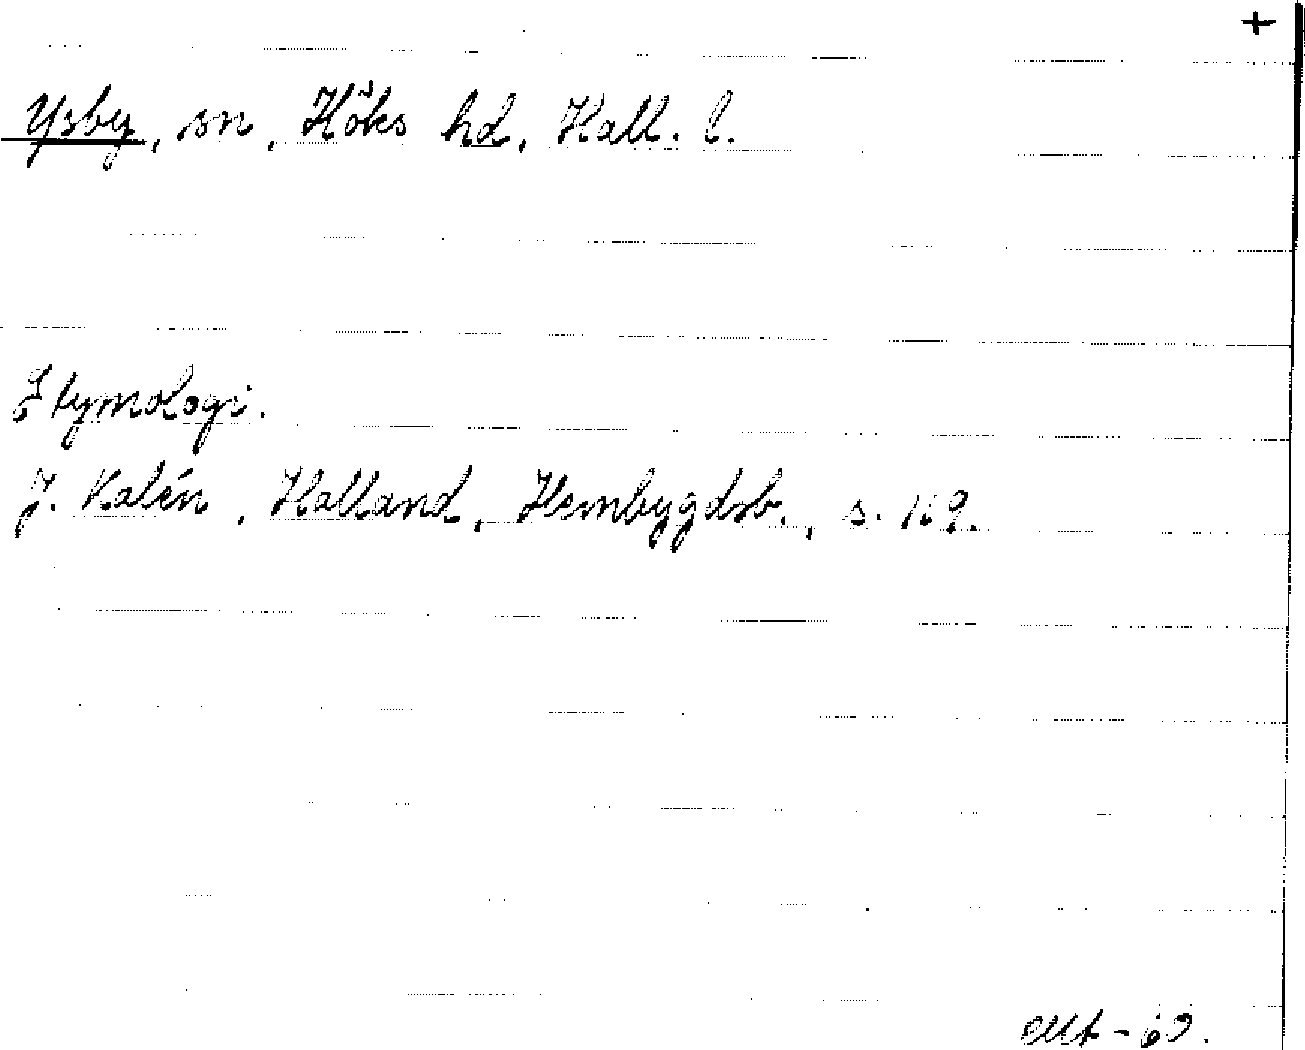 +
Ysby, sn, Höks hd, Hall. l.
Etymologi.
J. Kalén, Halland, Hembygdsb., s. 119.